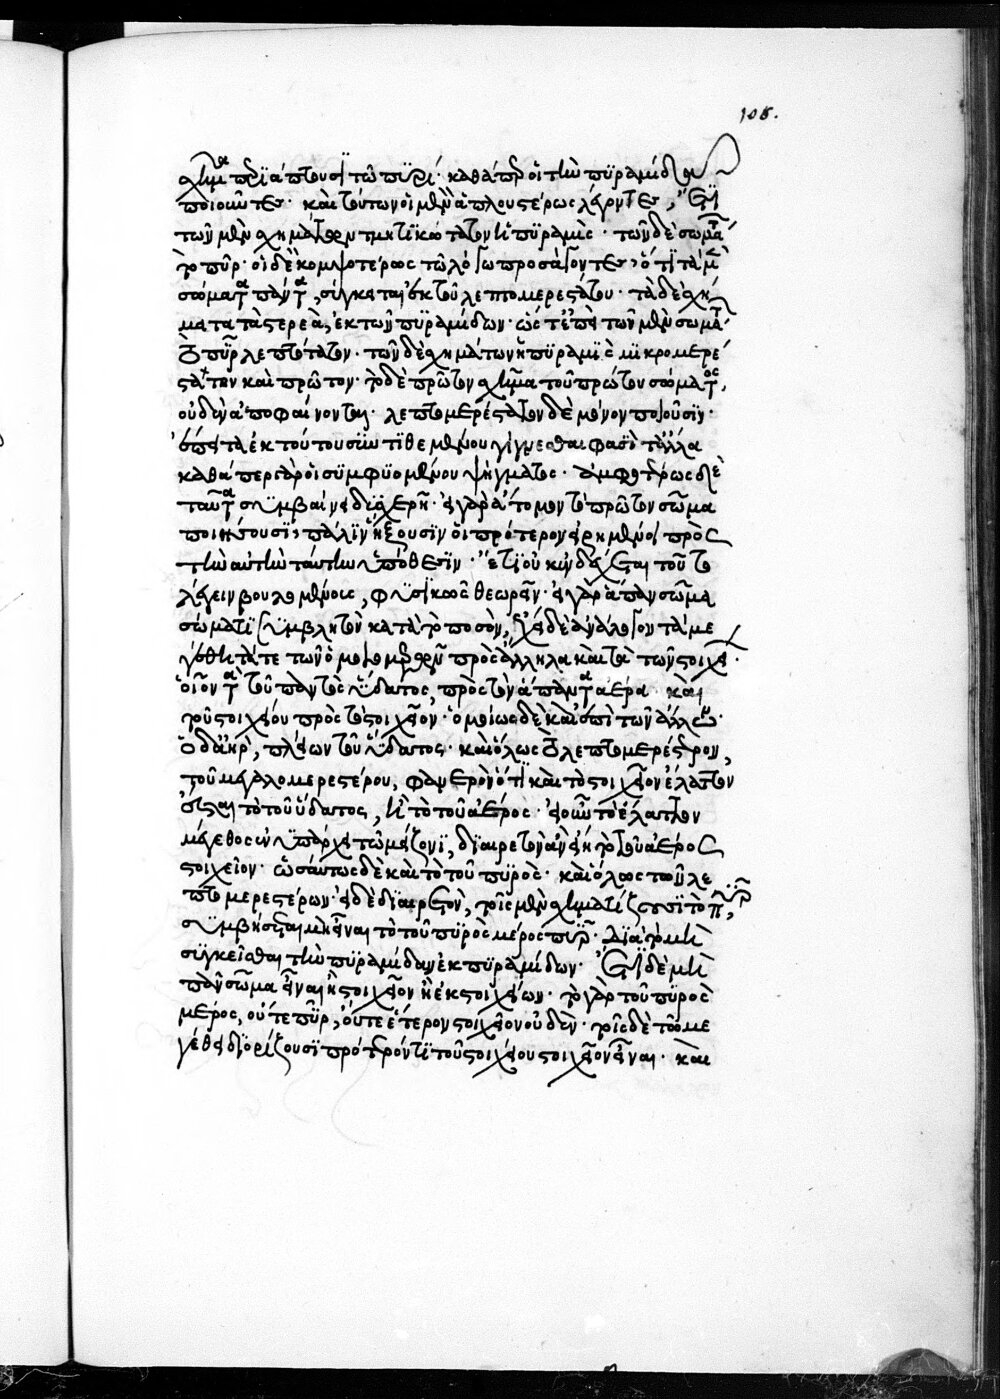 108.
σχῆμα περιάπτουσι τῷ πυρί· καθάπερ οἱ τὴν πυραμίδα
ποιοῦντες· καὶ τούτων οἱ μὲν ἁπλουστέρως λέγοντες, ὅτι
τῶν μὲν σχημάτων τμητικώτατον ἡ πυραμίς· τῶν δὲ σωμάτων
τὸ πῦρ· οἱ δὲ κομψοτέρως τῷ λόγῳ προσάγοντες, ὅτι τὰ μὲν
σώματα πάντα, σύγκειται ἐκ τοῦ λεπτομερεστάτου· τὰ δὲ σχή
ματα τὰ στερεὰ, ἐκ τῶν πυραμίδων· ὥστ' ἐπεὶ τῶν μὲν σωμάτων
τὸ πῦρ λεπτότατον· τῶν δὲ σχημάτων ἡ πυραμὶς μικρομερέ
στατον καὶ πρῶτον· τὸ δὲ πρῶτον σχῆμα τοῦ πρώτου σώματος,
οὐδὲν ἀποφαίνονται· λεπτομερέστατον δὲ μόνον ποιοῦσιν·
ἔπειτα ἐκ τούτου συντιθεμένου γίγνεσθαι φασὶ τἄλλα
καθάπερ ἂν εἰ συμφυσωμένου ψήγματος· ἀμφοτέροις δὲ
ταὐτὰ συμβαίνει δυσχερῆ· εἰ γὰρ ἄτομον τὸ πρῶτον σῶμα
ποιήσουσι, πάλιν ἥξουσιν οἱ πρότερον εἰρημένοι πρὸς
τὴν αὐτὴν ταύτην ὑπόθεσιν· ἔτι οὐκ ἐνδέχεται τοῦτο
λέγειν βουλομένοις, φυσικῶς θεωρεῖν· εἰ γὰρ ἅπαν σῶμα
σώματι συμβλητὸν κατὰ τὸ ποσὸν, ἔχει δὲ ἀνάλογον τὰ με
γέθη τά τε τῶν ὁμοιομερῶν πρὸς ἄλληλα καὶ τὰ τῶν στοιχείων·
οἷον τὰ τοῦ παντὸς ὕδατος, πρὸς τὸν ἅπαντα ἀέρα καὶ
τοῦ στοιχείου πρὸς τὸ στοιχεῖον· ὁμοίως δὲ καὶ ἐπὶ τῶν ἄλλων·
ὁ δ' ἀὴρ, πλείων τοῦ ὕδατος· καὶ ὅλως τὸ λεπτομερέστερον,
τοῦ μεγαλομερεστέρου, φανερὸν ὅτι καὶ τὸ στοιχεῖον ἔλαττον
ἔσται τὸ τοῦ ὕδατος, ἢ τὸ τοῦ ἀέρος· εἰ οὖν τὸ ἔλαττον
μέγεθος ἐνυπάρχει τῷ μείζονι, διαιρετὸν ἂν εἴη τὸ τοῦ ἀέρος
στοιχεῖον· ὡσαύτως δὲ καὶ τὸ τοῦ πυρὸς· καὶ ὅλως τῶν λε
πτομερεστέρων· εἰ δὲ διαιρετὸν, τοῖς μὲν σχηματίζουσι τὸ πῦρ,
συμβήσεται μὴ εἶναι τὸ τοῦ πυρὸς μέρος πῦρ· διὰ τὸ μὴ
συγκεῖσθαι τὴν πυραμίδα ἐκ πυραμίδων· ἔτι δὲ μὴ
πᾶν σῶμα εἶναι ἢ στοιχεῖον ἢ ἐκ στοιχείων· τὸ γὰρ τοῦ πυρὸς
μέρος, οὔτε πῦρ, οὔτε ἕτερον στοιχεῖον οὐδέν· τοῖς δὲ τῷ με
γέθει διορίζουσι πρότερόν τι τοῦ στοιχείου στοιχεῖον εἶναι· καὶ